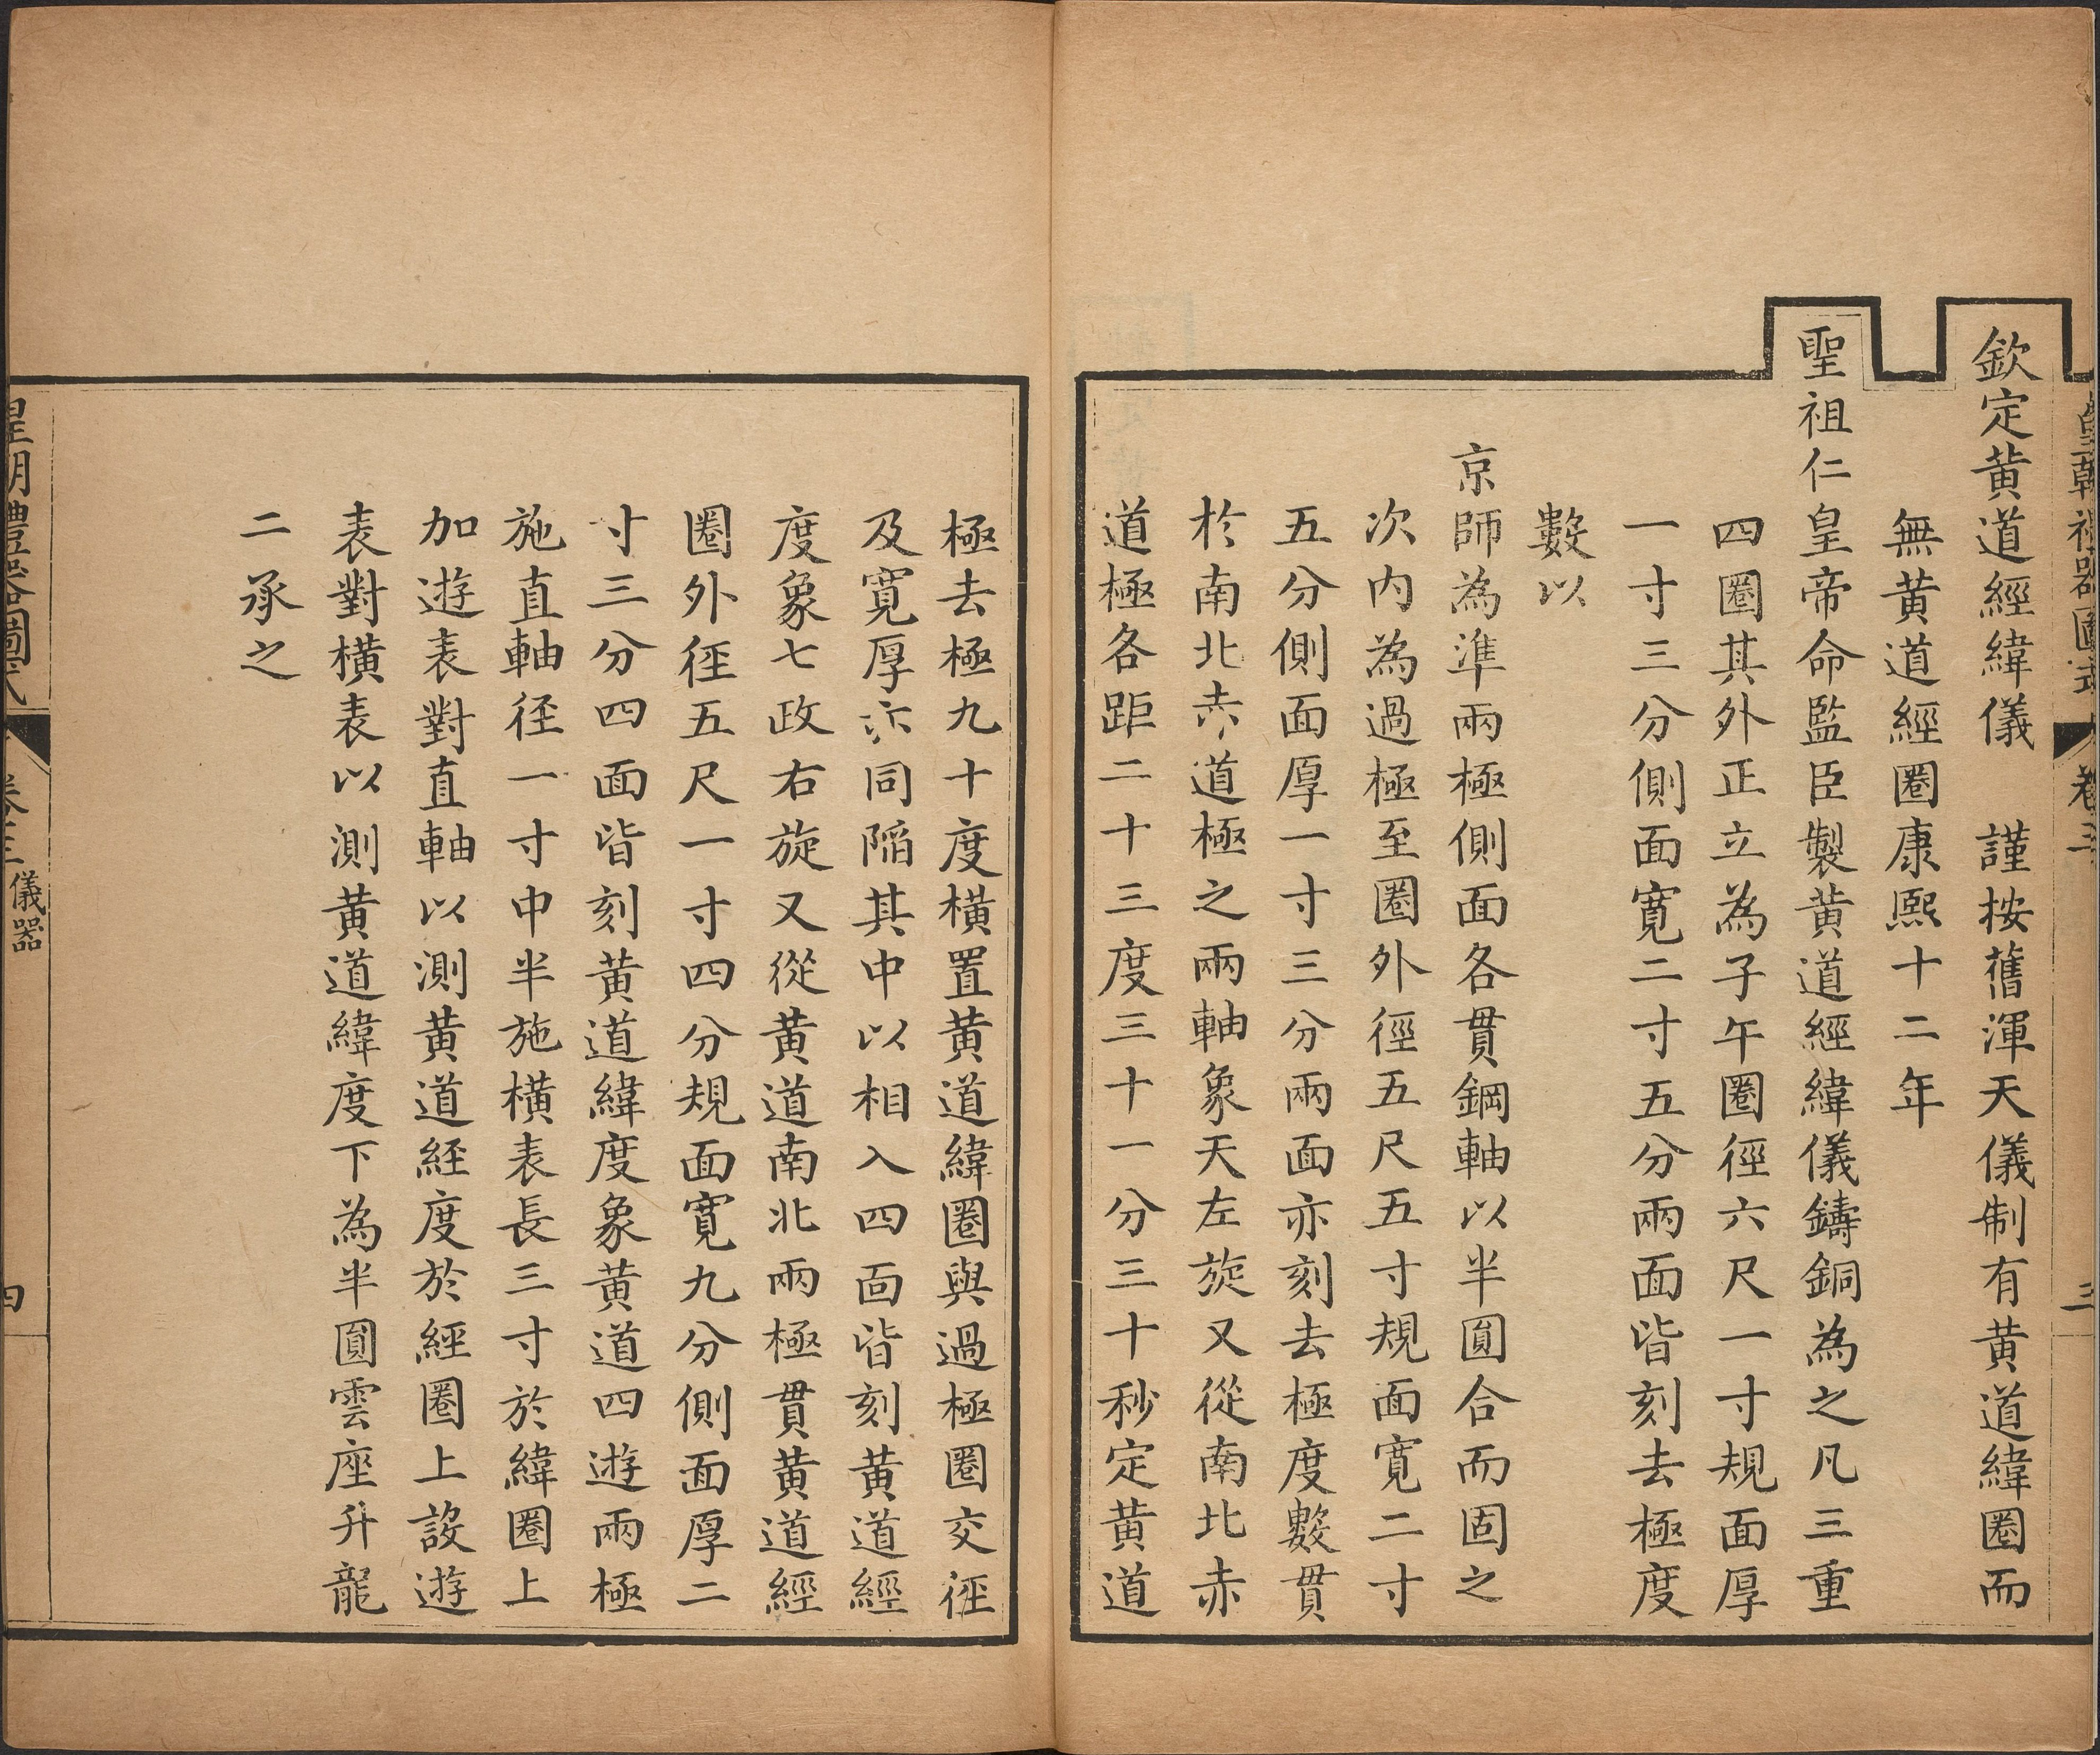 皇朝禮器圖式 卷三 三
欽定黄道經緯儀 謹按舊渾天儀制有黄道緯圈而
無黄道經圈康熙十二年
聖祖仁皇帝命監臣製黄道經緯儀鑄銅為之凡三重
四圈其外正立為子午圈徑六尺一寸規面厚
一寸三分側面寬二寸五分兩面皆刻去極度
數以
京師為準兩極側面各貫鋼軸以半圓合而固之
次内為過極至圈外徑五尺五寸規面寬二寸
五分側面厚一寸三分兩面亦刻去極度數貫
於南北赤道極之兩軸象天左旋又從南北赤
道極各距二十三度三十一分三十秒定黄道
極去極九十度橫置黄道緯圈與過極圈交徑
及寬厚亦同陷其中以相入四面皆刻黄道經
度象七政右旋又從黄道南北兩極貫黄道經
圈外徑五尺一寸四分規面寬九分側面厚二
寸三分四面皆刻黄道緯度象黄道四遊兩極
施直軸徑一寸中半施橫表長三寸於緯圈上
加遊表對直軸以測黄道経度於經圈上設遊
表對橫表以測黄道緯度下為半圓雲座升龍
二承之
皇朝禮器圖式 卷三 儀器 四